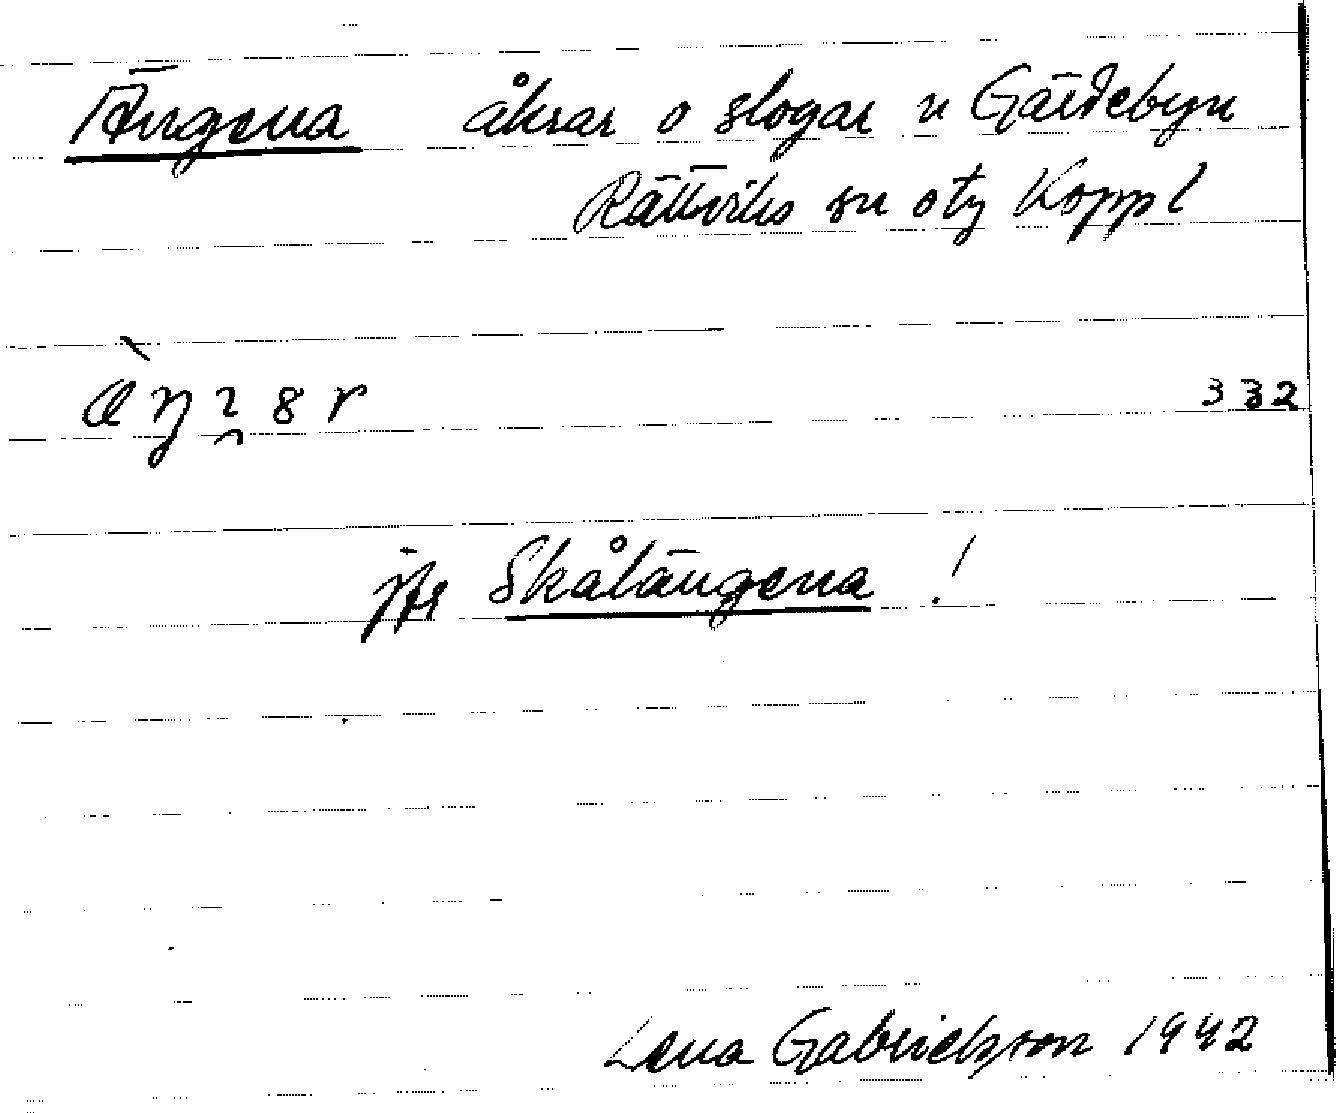 Ängena åkrar o slogar n Gärdebyn
Rättviks sn otg Kopp l
332
jfr Skålängena !
Lena Gabrielsson 1942